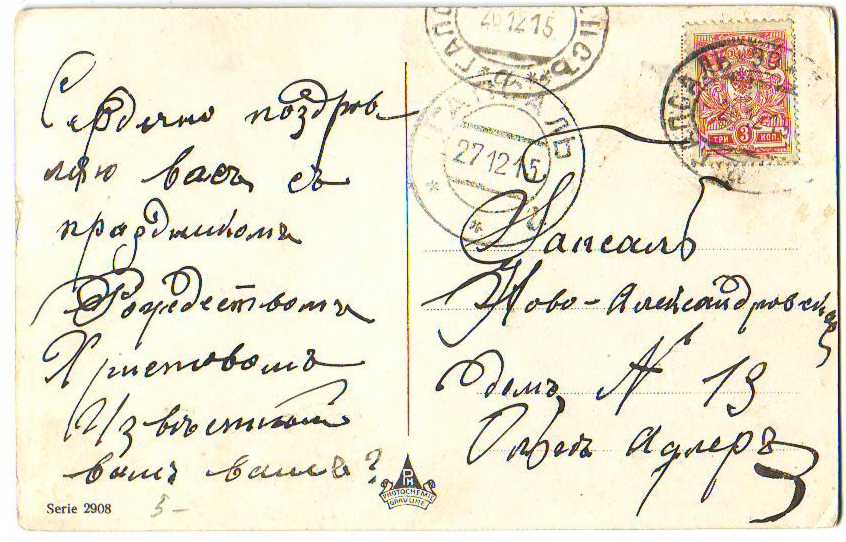 Сердечно поздрав
ляю васъ съ
праздникомъ
Рождествомъ
Христовомъ
Извѣстный
вамъ вашъ?
5-
Serie 2908
PH
PHOTOCHEMIE
26 12 15
ГАПСАЛЬ
27 12 15
ГАПСАЛЬ
ТРИ 3 КОП.
Гапсаль
Ново-Александровская
домъ № 13
Адлеръ